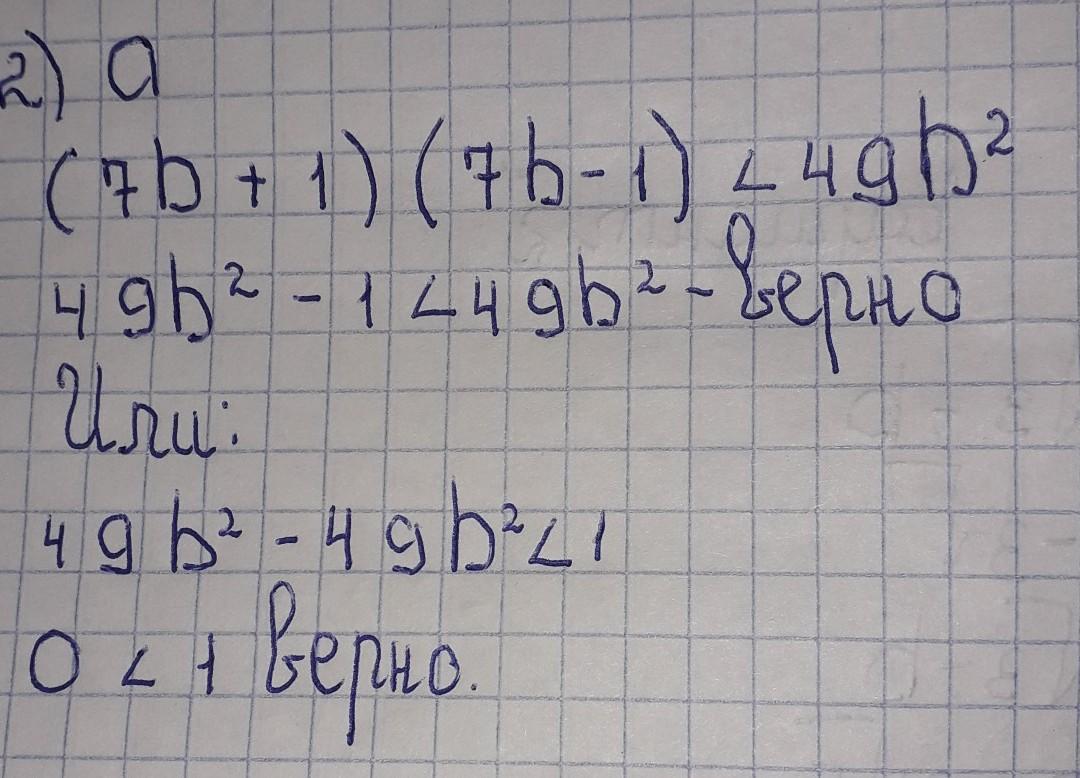 2) a
(7b + 1) (7b - 1) < 49b²
49b² - 1 < 49b² - верно
Или:
49b² - 49b² < 1
0 < 1 верно.